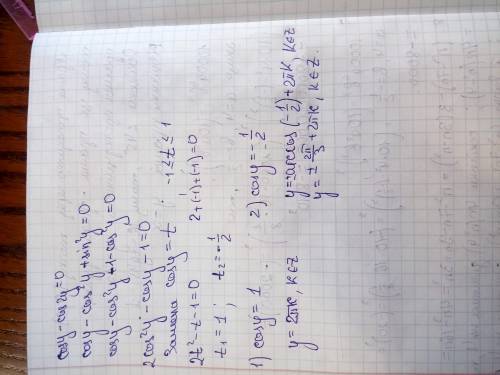 cosy - cos2y = 0
cosy - cos²y + sin²y = 0
cosy - cos²y + 1 - cos²y = 0
2cos²y - cosy - 1 = 0
Замена cosy = t ; -1 ≤ t ≤ 1
2t² - t - 1 = 0 2+(-1)+(-1)=0
t₁ = 1 ; t₂ = -1/2
1) cosy = 1 2) cosy = -1/2
y = 2πk, k∈Z y = ±arccos(-1/2) + 2πk, k∈Z
y = ± 2π/3 + 2πk, k∈Z.